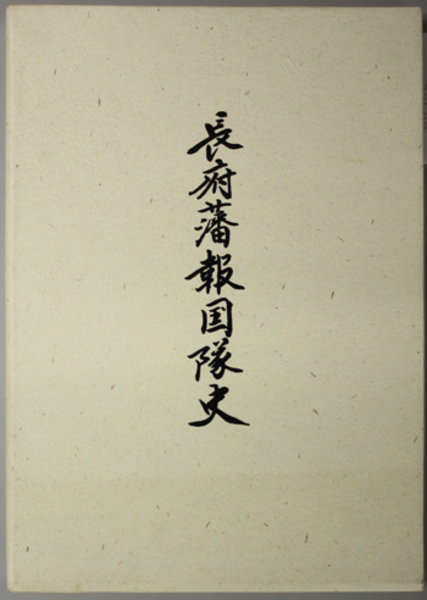 長府藩報国隊史